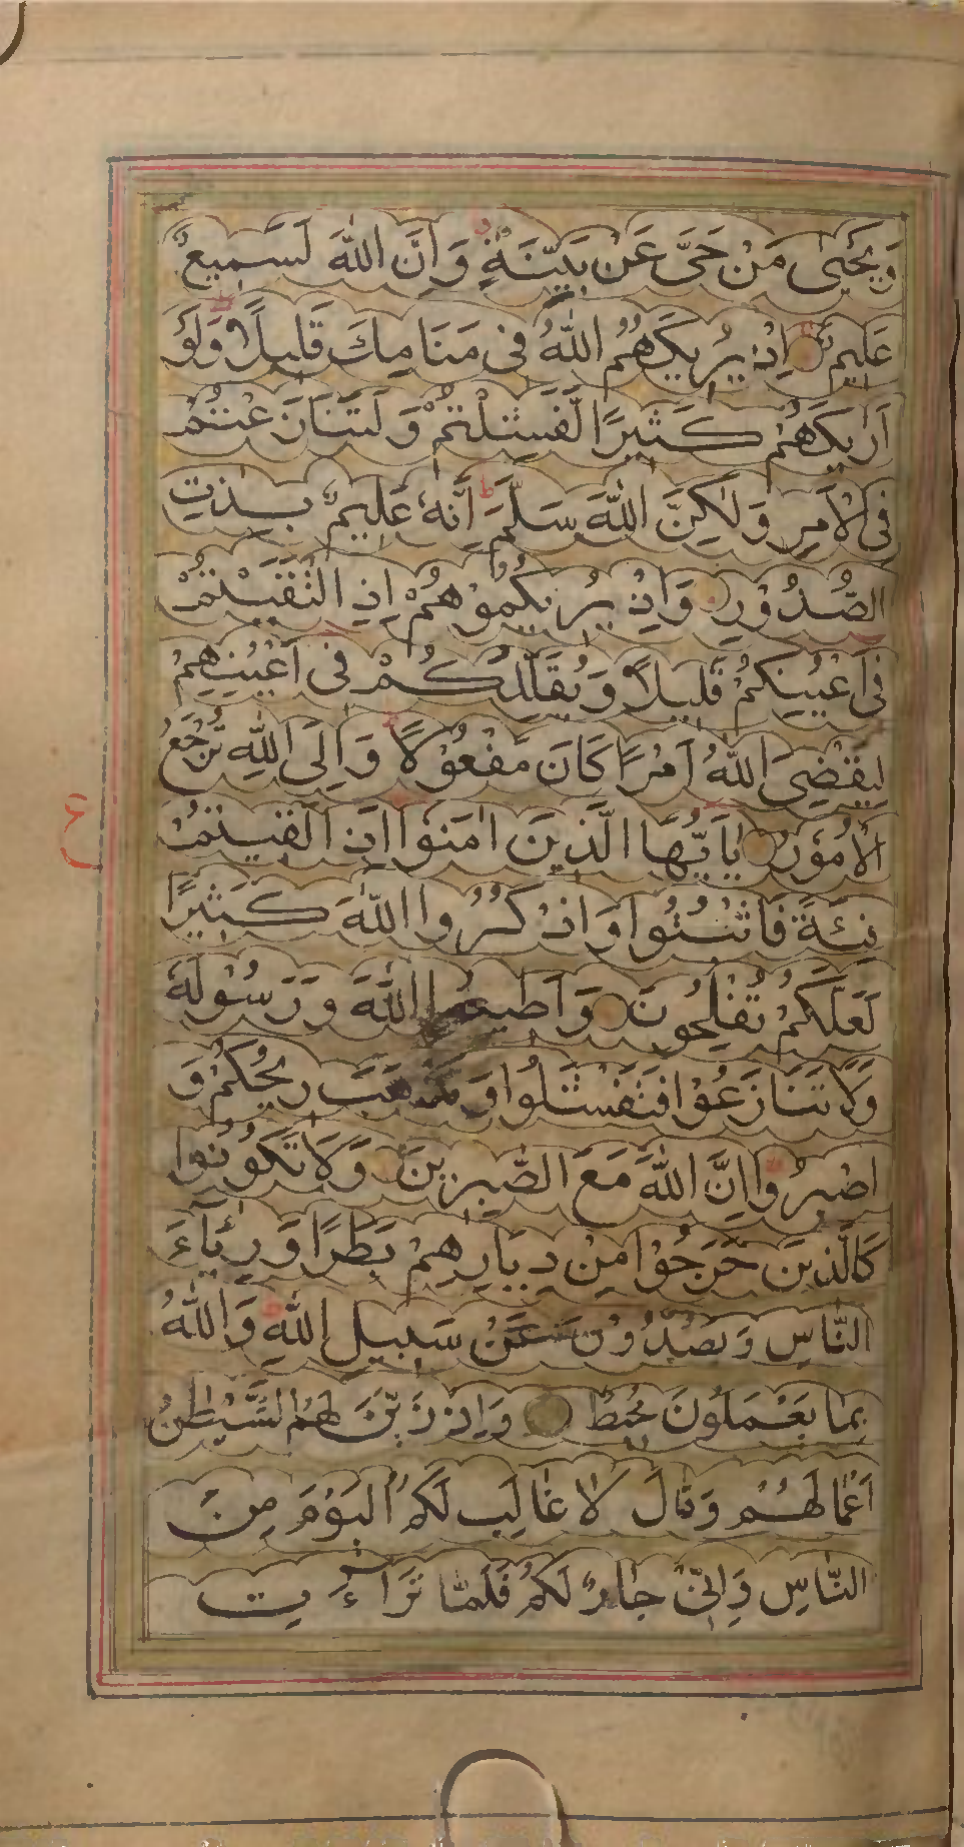 وَيَحْيٰى مَنْ حَىَّ عَنْ بَيِّنَةٍ وَاِنَّ اللّٰهَ لَسَمِيعٌ
عَلِيمٌ اِذْ يُرِيكَهُمُ اللّٰهُ فِى مَنَامِكَ قَلِيلًا وَلَوْ
اَرٰيكَهُمْ كَثِيرًا لَّفَشِلْتُمْ وَلَتَنَازَعْتُمْ
فِى الْاَمْرِ وَلٰكِنَّ اللّٰهَ سَلَّمَ اِنَّهُ عَلِيمٌ بِذَاتِ
الصُّدُوْرِ وَاِذْ يُرِيكُمُوْهُمْ اِذِ الْتَقَيْتُمْ
فِى اَعْيُنِكُمْ قَلِيلًا وَيُقَلِّلُكُمْ فِى اَعْيُنِهِمْ
لِيَقْضِىَ اللّٰهُ اَمْرًا كَانَ مَفْعُوْلًا وَاِلَى اللّٰهِ تُرْجَعُ
الْاُمُوْرُ يٰاَيُّهَا الَّذِينَ اٰمَنُوْا اِذَا لَقِيتُمْ
فِئَةً فَاثْبُتُوا وَاذْكُرُوا اللّٰهَ كَثِيرًا
لَعَلَّكُمْ تُفْلِحُونَ وَاَطِيعُوا اللّٰهَ وَرَسُوْلَهُ
وَلَا تَنَازَعُوْا فَتَفْشَلُوا وَتَذْهَبَ رِيحُكُمْ وَ
اصْبِرُوا اِنَّ اللّٰهَ مَعَ الصّٰبِرِينَ وَلَا تَكُوْنُوا
كَالَّذِينَ خَرَجُوْا مِنْ دِيَارِهِمْ بَطَرًا وَرِئَآءَ
النَّاسِ وَيَصُدُّوْنَ عَنْ سَبِيلِ اللّٰهِ وَاللّٰهُ
بِمَا يَعْمَلُونَ مُحِيطٌ وَاِذْ زَيَّنَ لَهُمُ الشَّيْطٰنُ
اَعْمَالَهُمْ وَقَالَ لَا غَالِبَ لَكُمُ الْيَوْمَ مِنَ
النَّاسِ وَاِنِّى جَارٌ لَكُمْ فَلَمَّا تَرَآءَتِ
ع